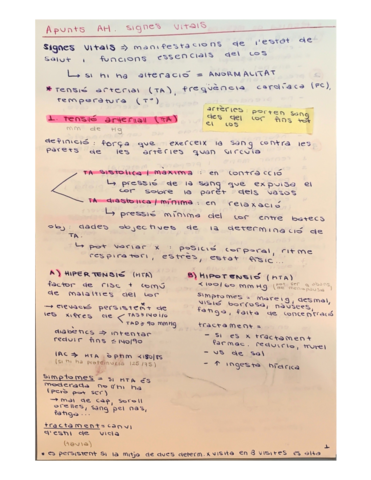 Apunts AH. signes vitals
signes vitals => manifestacions de l'estat de
salut i funcions essencials del cos
↳ si hi ha alteració = ANORMALITAT
* tensió arterial (TA), freqüència cardíaca (FC),
temperatura (Tº)
artèries porten sang
des del cor fins tot
el cos
1. Tensió arterial (TA)
mm de Hg
definició: força que exerceix la sang contra les
parets de les artèries quan circula
TA sistòlica / màxima: en contracció
↳ pressió de la sang que expulsa el
cor sobre la paret dels vasos
TA diastòlica / mínima: en relaxació
↳ pressió mínima del cor entre batecs
obj. dades objectives de la determinació de
TA
↳ pot variar x: posició corporal, ritme
respiratori, estrès, estat físic...
A) HIPERTENSIÓ (HTA)
factor de risc + comú
de malalties del cor
→ elevació persistent de
les xifres de
diabètics => intentar
reduir fins
símptomes = si HTA és
moderada no ni ha
(però pot ser)
→ mal de cap, soroll
orelles, sang pel nas,
fatiga...
tractament = canvi
d'estil de vida
B) HIPOTENSIÓ (HTA)
<100/60 mmHg
símptomes = mareig, desmai,
visió borrosa, nàusees,
fatiga, falta de concentració
tractament =
- si és x tractament
fàrmac. reduir-lo,
- ús de sal
- ↑ ingesta hídrica
* és persistent si la mitja de dues determ. x visita en 3 visites és alta
1